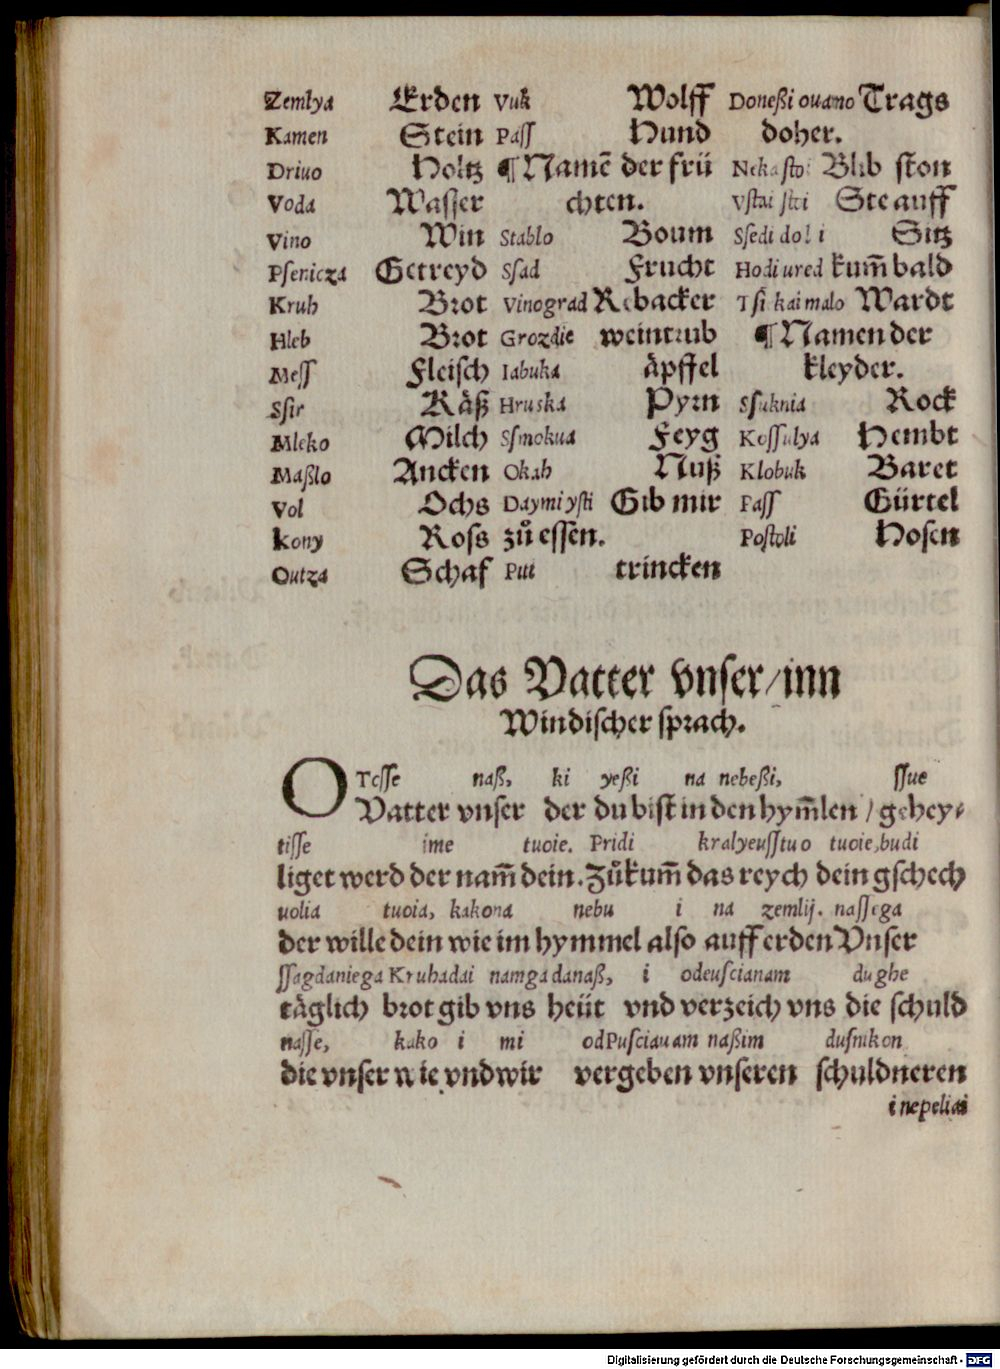 Zemlya Erden
Kamen Stein
Driuo Holtz
Voda Wasser
Vino Win
Psenicza Getreyd
Kruh Brot
Hleb Brot
Meſſ Fleisch
Sſir Käß
Mleko Milch
Maßlo Ancken
Vol Ochs
kony Ross
Outza Schaf
Vuk Wolff
Paſſ Hund
¶ Namē der frü
chten.
Stablo Boum
Sſad Frucht
Vinograd Rebacker
Grozdie weintrub
Iabuka äpffel
Hruska Pyrn
Sſmokua Feyg
Okah Nuß
Daymi yſti Gib mir
zuͦ essen.
Piti trincken
Doneßi ouamo Trags
doher.
Neka ſto Blib ston
Vſtai Ste auff
Sſedi doli Sitz
Hodi ured kum̄ bald
Tſi kai malo Wardt
¶ Namen der
kleyder.
Sſuknia Rock
Koſſulya Hembt
Klobuk Baret
Paſſ Gürtel
Poſtoli Hosen
Das Vatter vnser/inn
Windischer sprach.
OTcſſe naß, ki yeßi na nebeßi, ſſue
Vatter vnser der du bist in den hym̄len / gehey⸗
tiſſe ime tuoie. Pridi kralyeuſſtuo tuoie, budi
liget werd der nam̄ dein. Zuͦkum̄ das reych dein gschech
uolia tuoia, kakona nebu i na zemlij. naſſega
der wille dein wie im hymmel also auff erden Vnser
ſſagdaniega Kruhadai namga danaß, i odeuſcianam dughe
täglich brot gib vns heüt vnd verzeich vns die schuld
naſſe, kako i mi odPuſciauam naßim duſnikon
die vnser wie vnd wir vergeben vnseren schuldneren
i nepeliai
Digitalisierung gefördert durch die Deutsche Forschungsgemeinschaft - DFG